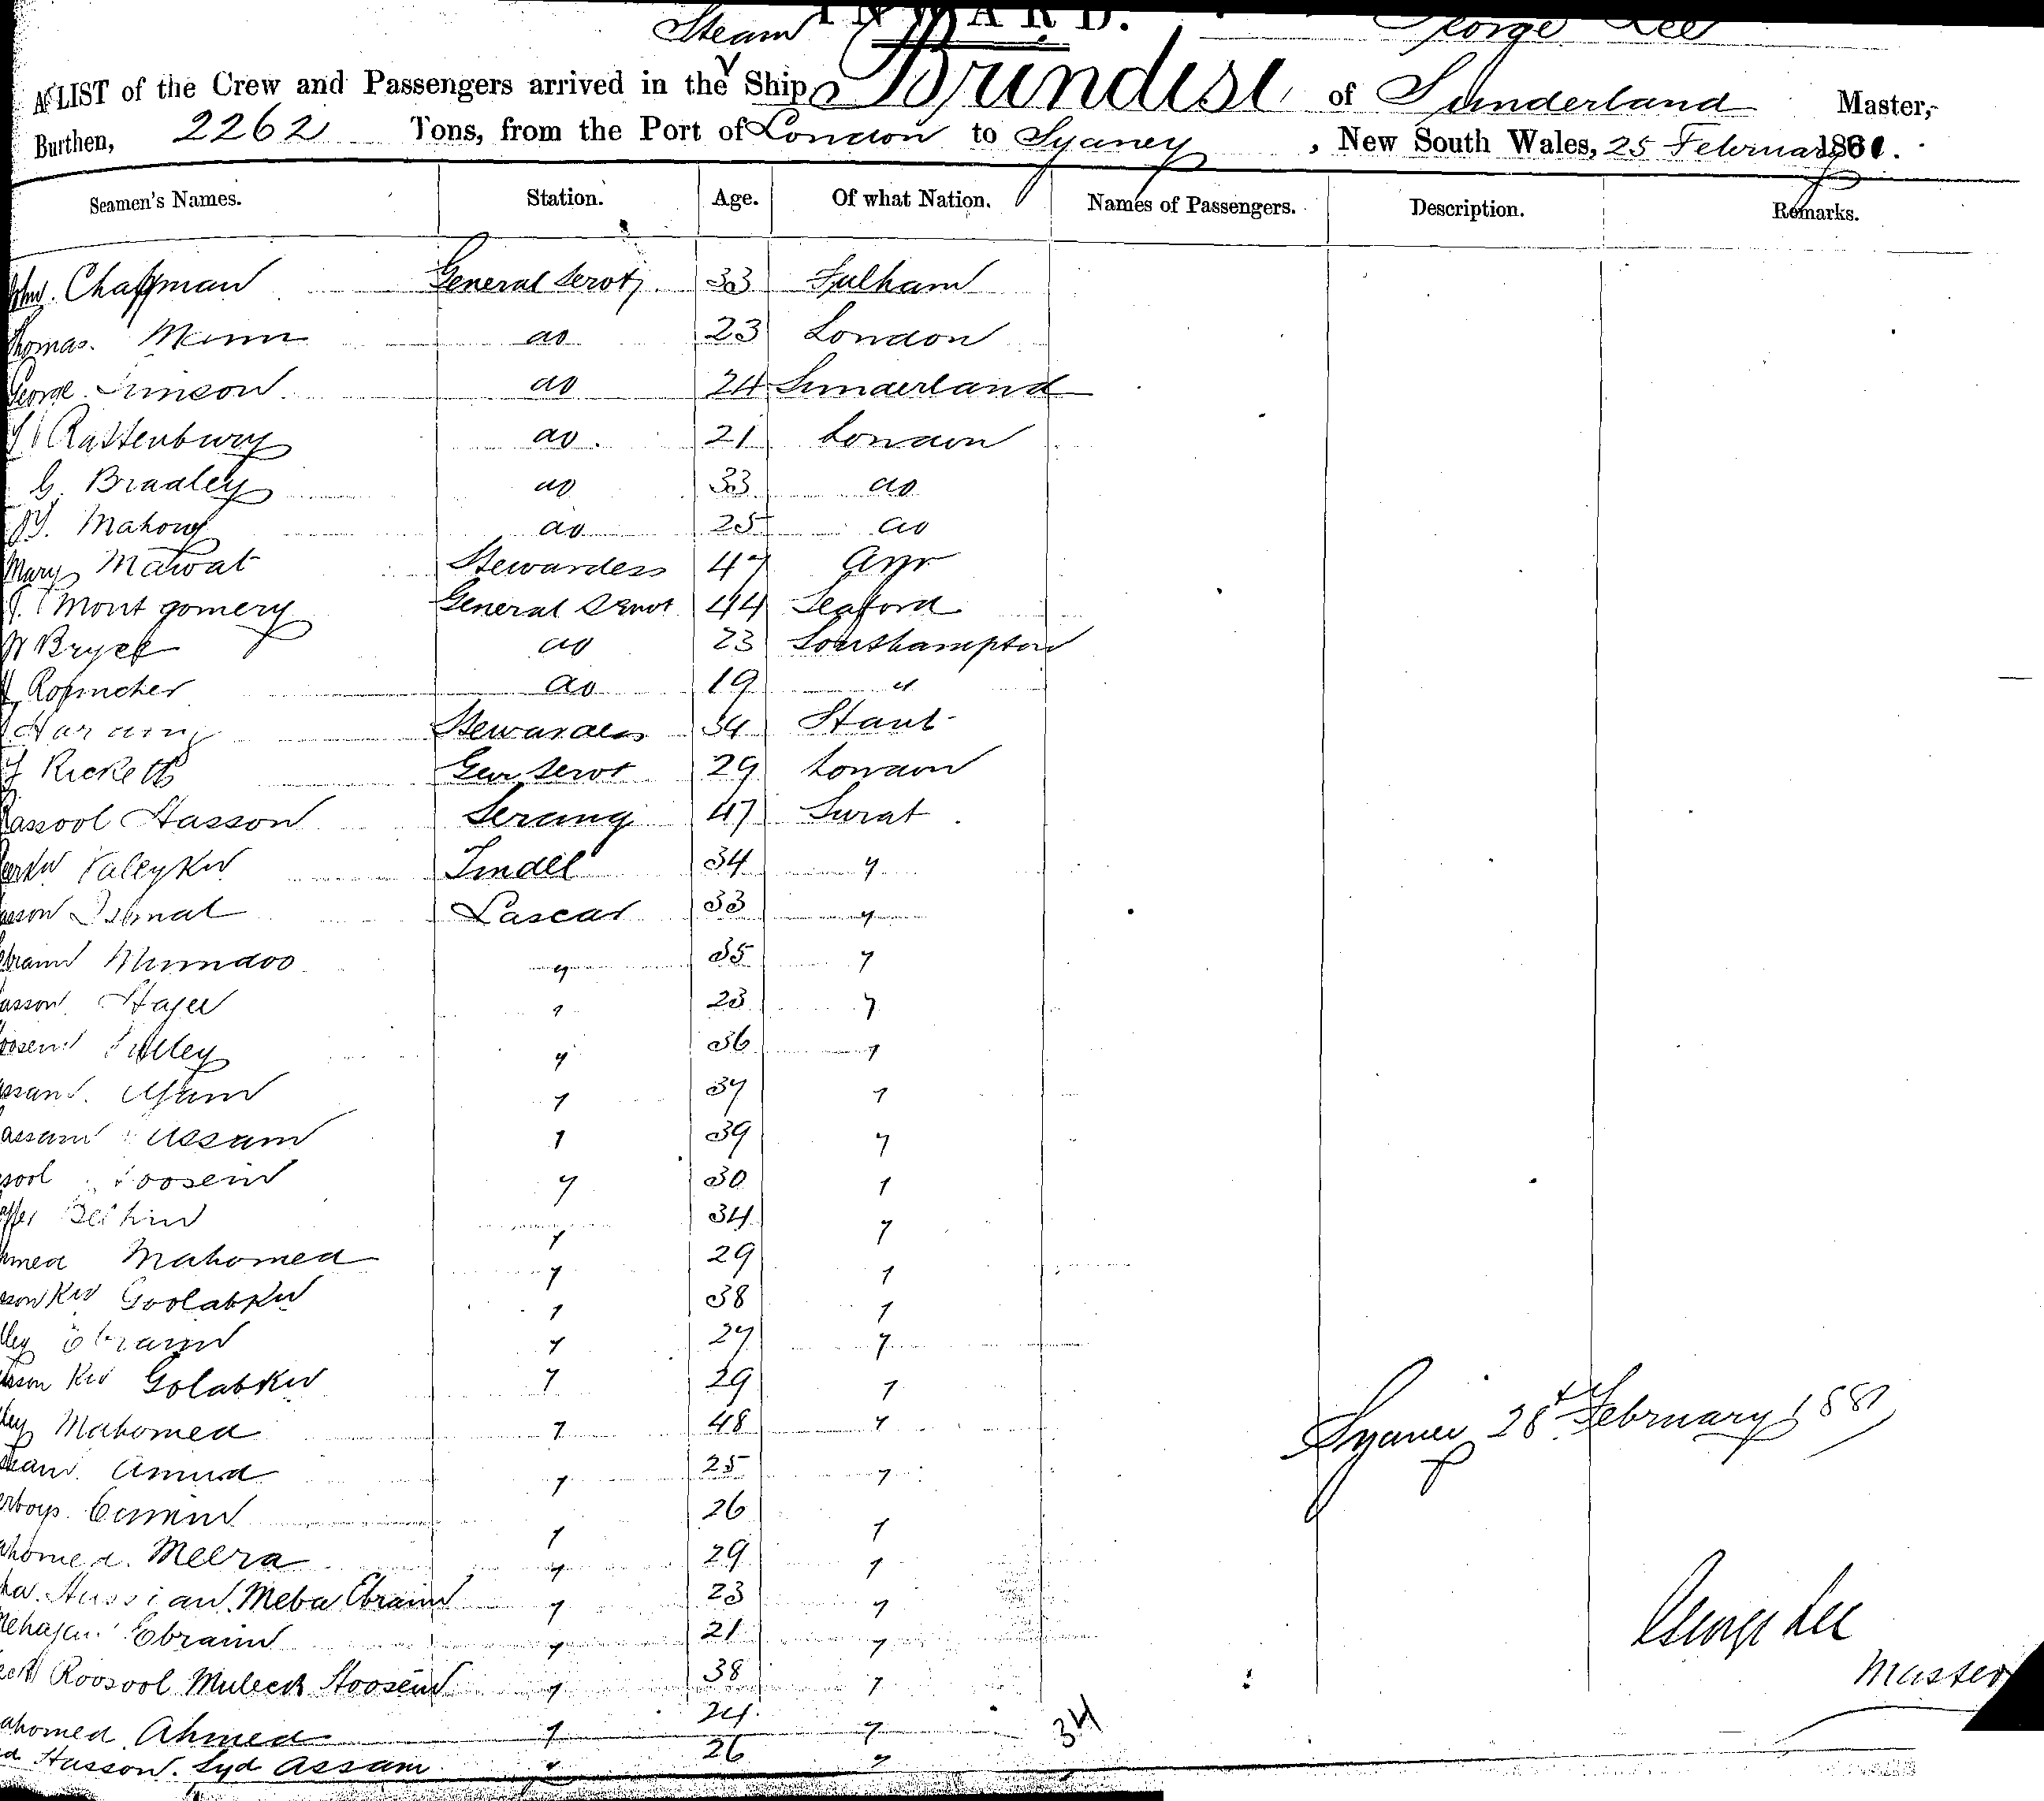 INWARD.
Steam George Lee
A LIST of the Crew and Passengers arrived in the Ship Brindisi of Sunderland Master,
Burthen, 2262 Tons, from the Port of London to Sydney, New South Wales, 25 February 1881.
Seamen's Names. Station. Age. Of what Nation. Names of Passengers. Description. Remarks.
John Chapman General Servt 33 Fulham
Thomas Munn do 23 London
George Simson do 24 Sunderland
Rattenbury do. 21 London
G. Bradley do 33 do
Mahony do 25 do
Mary Mawat Stewardess 47 Ayr
J. Montgomery General Servt 44 Seaford
W Bryce do 23 Southampton
do 19 "
Harding Stewardess 34 Hants
Ricketts Gen Servt 29 London
Rassool Hasson Serang 47 Surat.
Valeykn Tindel 34 "
Lascar 33 "
Ebraim Mundoo " 35 "
asson " 23 "
oosein " 36 "
" 37 "
assam Assam " 39 "
sool Hoosein " 30 "
" 34 "
hmed Mahomed " 29 "
Goolabkn " 38 "
lley Ebraim " 27 "
Golabkn " 29 "
lley Mahomed " 48 "
Amud " 25 "
" 26 "
ahomed. Meera " 29 "
Hussian Meba Ebraim " 23 "
Ebraim " 21 "
Roosool Muleck Hoosein " 38 "
ahomed Ahmed " 24 "
Hasson. Syd Assam " 26 "
34
Sydney 28th February 1881
George Lee
Master